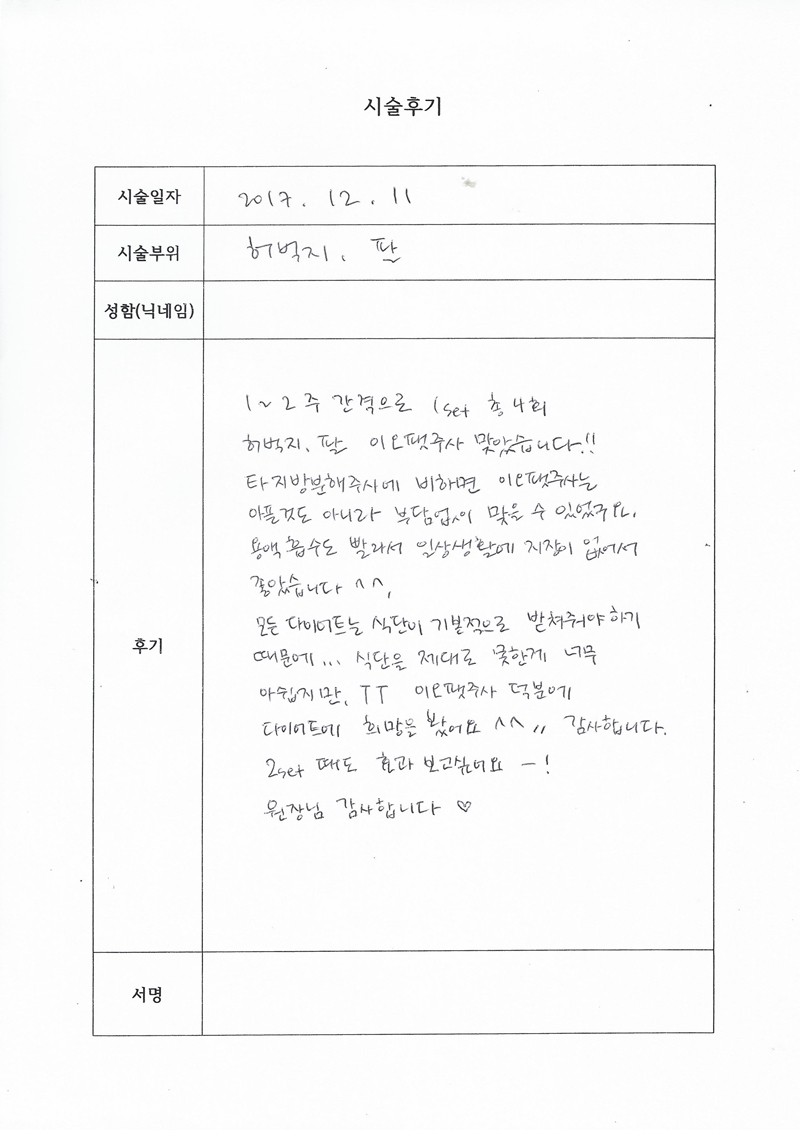 시술후기
시술일자 2017. 12. 11
시술부위 허벅지, 팔
성함(닉네임)
후기
1~2주 간격으로 1set 총 4회
허벅지, 팔 이오팻주사 맞았습니다!!
타지방분해주사에 비하면 이오팻주사는
아플것도 아니라 부담없이 맞을 수 있었구요,
용액 흡수도 빨라서 일상생활에 지장이 없어서
좋았습니다 ^^,
모든 다이어트는 식단이 기본적으로 받쳐줘야하기
때문에... 식단을 제대로 못한게 너무
아쉽지만, TT 이오팻주사 덕분에
다이어트에 희망을 봤어요 ^^,, 감사합니다.
2set 때도 효과 보고싶어요 -!
원장님 감사합니다 ♡
서명